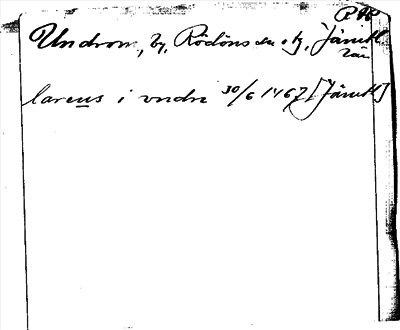 Undrom, by, Rödöns sn o tg, Jämtl.
län
lareus i vndre 30/6 1467 [Jämtl]